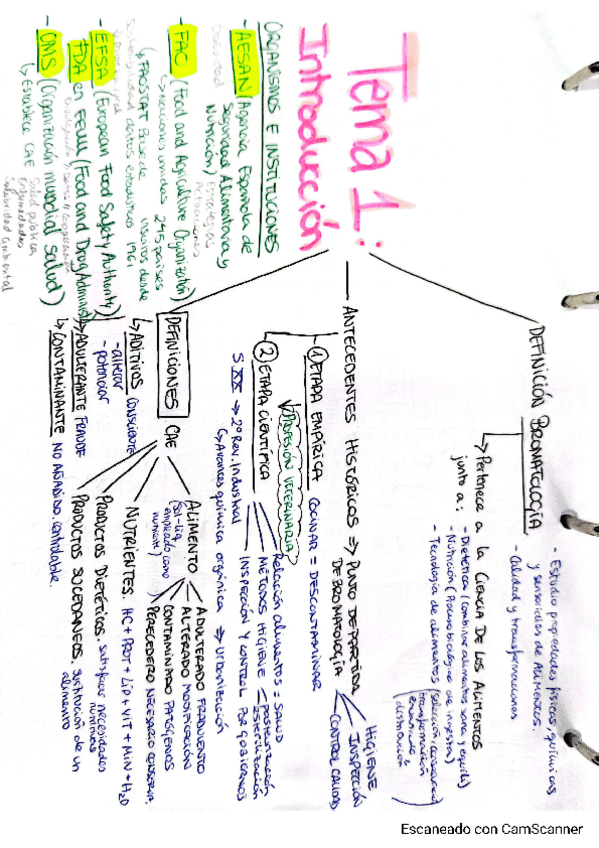 Tema 1:
Introducción
DEFINICIÓN BROMATOLOGÍA
- Estudio propiedades físicas, químicas
y sensoriales de Alimentos.
- Calidad y transformaciones
↳ Pertenece a la Ciencia De Los Alimentos
junto a:
- Dietética (Combinar alimentos sana y equilib)
- Nutrición (Proceso biológico de ingesta)
- Tecnología de alimentos (selección, conserva
transformación
distribución)
ANTECEDENTES HISTÓRICOS ⇒ PUNTO DE PARTIDA
DE BROMATOLOGÍA
HIGIENE
INSPECCIÓN
CONTROL CALIDAD
- ① ETAPA EMPÍRICA COCINAR = DESCONTAMINAR
PROFESIÓN VETERINARIA
- ② ETAPA CIENTÍFICA
Relación alimentos = SALUD
MÉTODOS HIGIENE
pasteurización
esterilización
INSPECCIÓN Y CONTROL POR GOBIERNOS
S XIX → 2º Rev. industrial
↳ Avances química orgánica ⇒ URBANIZACIÓN
DEFINICIONES CAE
ALIMENTO
(Sól-Líq
empleado como
nutriente)
ADULTERADO FRAUDULENTO
ALTERADO MODIFICACIÓN
CONTAMINADO PATÓGENOS
PERECEDERO NECESARIO CONSERVA
NUTRIENTES. HC + PROT + LIP + VIT + MIN + H2O
PRODUCTOS DIETÉTICOS. satisfacer necesidades
nutritivas
PRODUCTOS SUCEDANEOS. sustitución de un
alimento
↳ ADITIVOS CONSCIENTE
- alterar
- potenciar
↳ ADULTERANTE FRAUDE
↳ CONTAMINANTE NO AÑADIDO, controlable.
ORGANISMOS E INSTITUCIONES
- AESAN (Agencia Española de
Seguridad Alimentaria y
Nutrición)
- FAO (Food and Agriculture Organization)
↳ naciones unidas 245 países
↳ FAOSTAT Base de
datos estadísticos desde
1961
- EFSA (European Food Safety Authority)
FDA en EEUU (Food and Drug Administ)
- OMS (Organización mundial salud)
↳ Establece CAE
Salud pública
Enfermedades
Salubridad ambiental
Escaneado con CamScanner